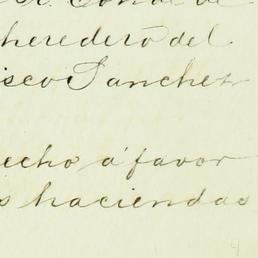 Sr. Conde de
heredero del
isco Sanchez
echo á favor
s haciendas